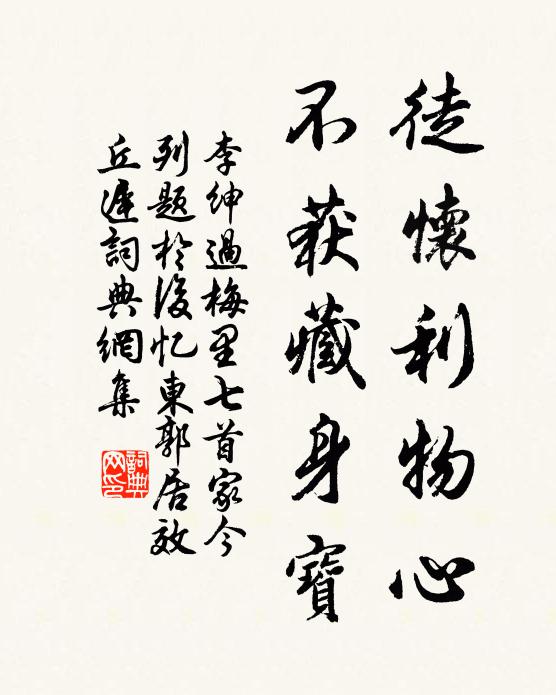 徒懷利物心
不获藏身寶
李紳過梅里七首家今
列題於後忆東郭居效
丘遲詞典網集
詞典
网印